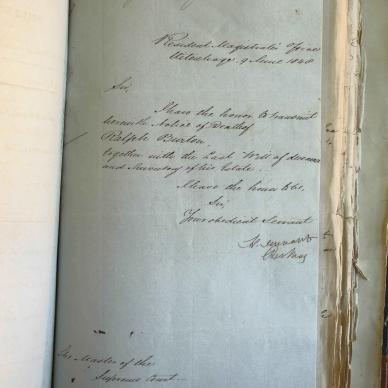 Resident Magistrate's Office
Uitenhage 9 June 1848
Sir,
I have the honor to transmit
herewith Notice of Death of
Ralph Burton
together with the Last Will of deceased
and Inventory of his Estate.
I have the honor to be
Sir
Your obedient Servant
The Master of the
Supreme Court